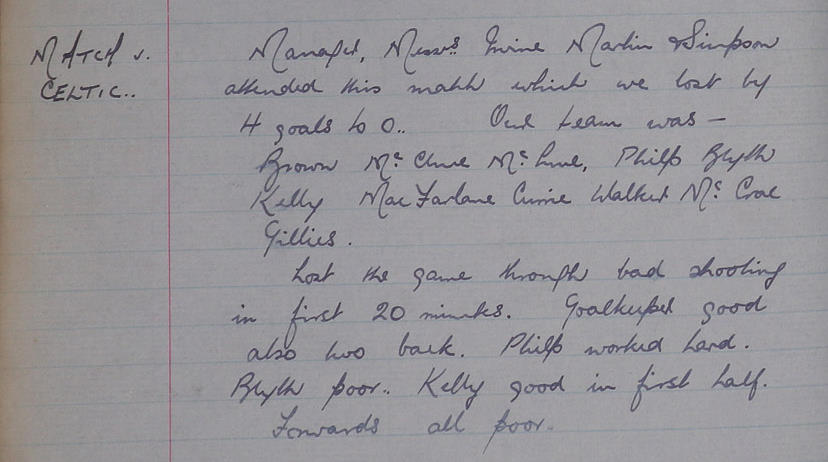 MATCH v.
CELTIC..
Manager, Messrs Irvine Martin & Simpson
attended this match which we lost by
4 goals to 0.. Our team was —
Brown Mc. Clure Mc. Lure, Philp Blyth
Kelly MacFarlane Currie Walker Mc. Crae
Gillies.
Lost the game through bad shooting
in first 20 minutes. Goalkeeper good
also two back. Philp worked hard.
Blyth poor.. Kelly good in first half.
Forwards all poor.